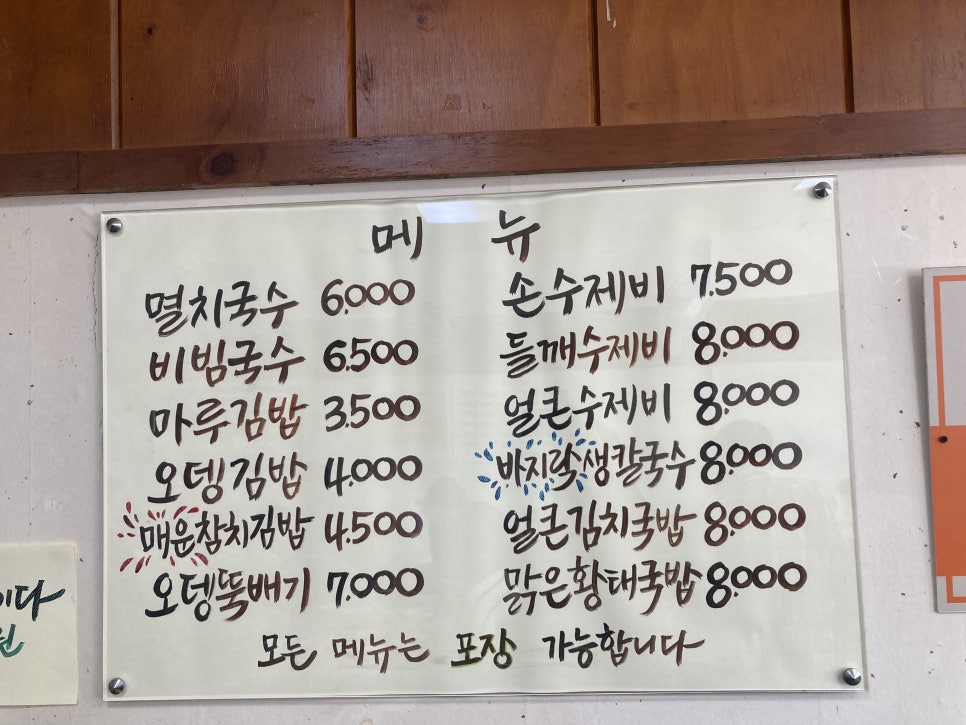 메 뉴
멸치국수 6.000
비빔국수 6.500
마루김밥 3.500
오뎅김밥 4.000
매운참치김밥 4.500
오뎅뚝배기 7.000
손수제비 7.500
들깨수제비 8.000
얼큰수제비 8.000
바지락생칼국수 8.000
얼큰김치국밥 8.000
맑은황태국밥 8.000
모든 메뉴는 포장 가능합니다